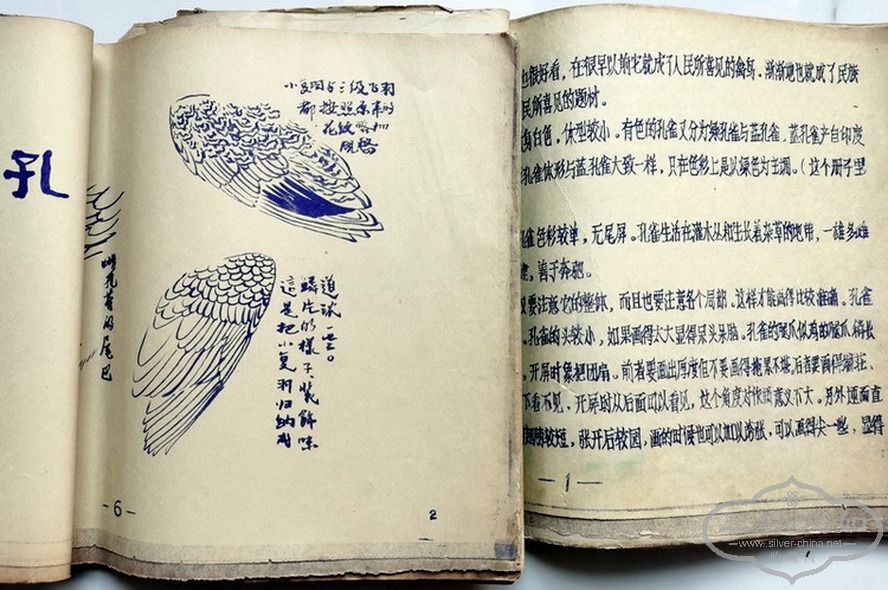 孔
雌孔雀的尾巴
小复羽与三级飞羽
都按照原来的
花纹略加
风格
这是把小复羽归纳成
鳞片的样子、装饰味
道浓一些。
-6-
2
也很好看，在很早以前它就成了人民所喜见的禽鸟。渐渐地也就成了民族
民所喜见的题材。
白色，体型较小。有色的孔雀又分为绿孔雀与蓝孔雀。蓝孔雀产自印度
孔雀体形与蓝孔雀大致一样，只在色彩上是以绿色为主调。（这个册子里
孔雀色彩较单，无尾屏。孔雀生活在灌木丛和生长着杂草的地带，一雄多雌
善于奔跑。
要注意它的整体，而且也要注意各个局部。这样才能画得比较准确。孔雀
孔雀的头较小，如果画得太大显得呆头呆脑。孔雀的腿爪似鸡的腿爪
开屏时象把团扇。前者要画出厚度但不要画得拖累不堪，后者要画得
下看不见．开屏时从后面可以看见，这个角度对作画意义不大。另外迎面直
较短，张开后较园，画的时候也可以加以夸张，可以画得尖一些，显得
-1-
www.silver-china.net